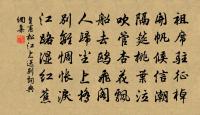 祖席駐征棹
開帆候信潮
隔筵桃葉泣
吹管杏花飄
船去鷗飛閣
人歸塵上橋
別離惆悵淚
江路濕紅蕉
皇甫松江上送別詞典
網集